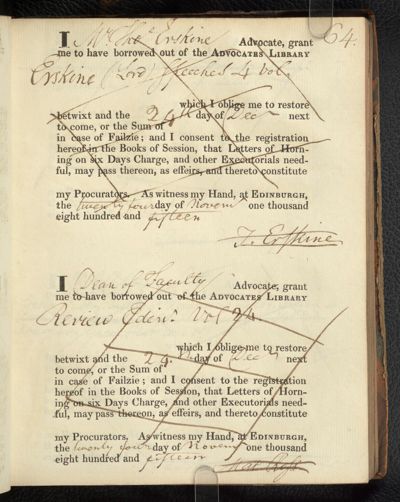 64.
I Mr Thos Erskine Advocate, grant
me to have borrowed out of the ADVOCATES LIBRARY
Erskine (Lord) Speeches 4 vol.
which I oblige me to restore
betwixt and the 24th day of Decr next
to come, or the Sum of
in case of Failzie; and I consent to the registration
hereof in the Books of Session, that Letters of Horn-
ing on six Days Charge, and other Executorials need-
ful, may pass thereon, as effeirs, and thereto constitute
my Procurators. As witness my Hand, at EDINBURGH,
the twenty four day of Novemr one thousand
eight hundred and fifteen
T. Erskine
I Dean of Faculty Advocate, grant
me to have borrowed out of the ADVOCATES LIBRARY
Review Edinr Vol 24
which I oblige me to restore
betwixt and the 24th day of Decr next
to come, or the Sum of
in case of Failzie; and I consent to the registration
hereof in the Books of Session, that Letters of Horn-
ing on six Days Charge, and other Executorials need-
ful, may pass thereon, as effeirs, and thereto constitute
my Procurators. As witness my Hand, at EDINBURGH,
the twenty four day of Novemr one thousand
eight hundred and fifteen